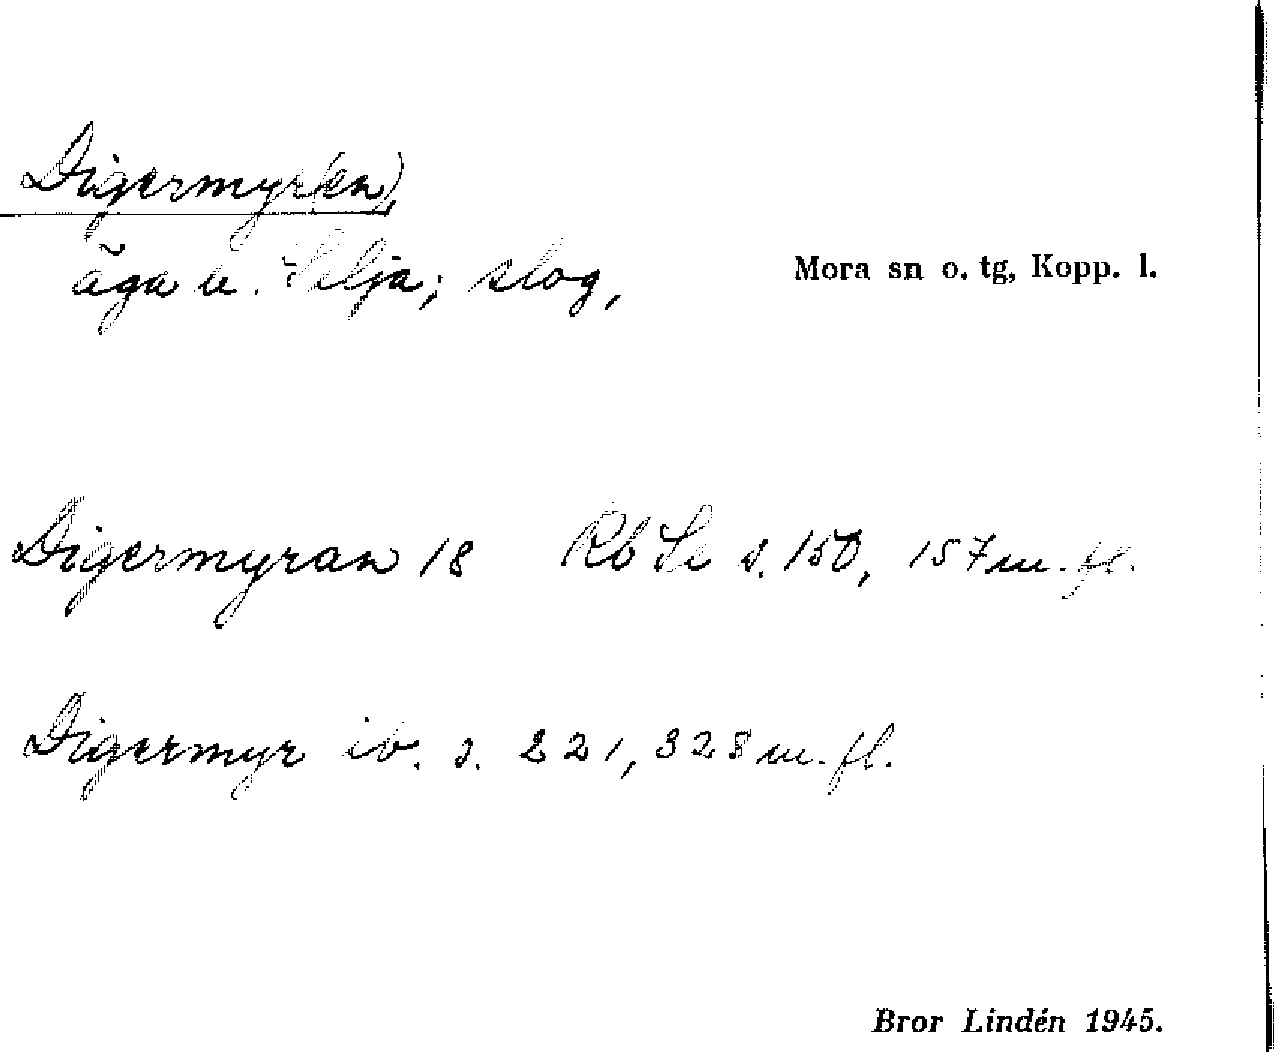 Digermyr(en),
äga u. Selja; slog,
Mora sn o. tg, Kopp. l.
Digermyran 18 Rb Se s. 150, 157 m. fl.
Digermyr ib. s. 221, 328 m. fl.
Bror Lindén 1945.